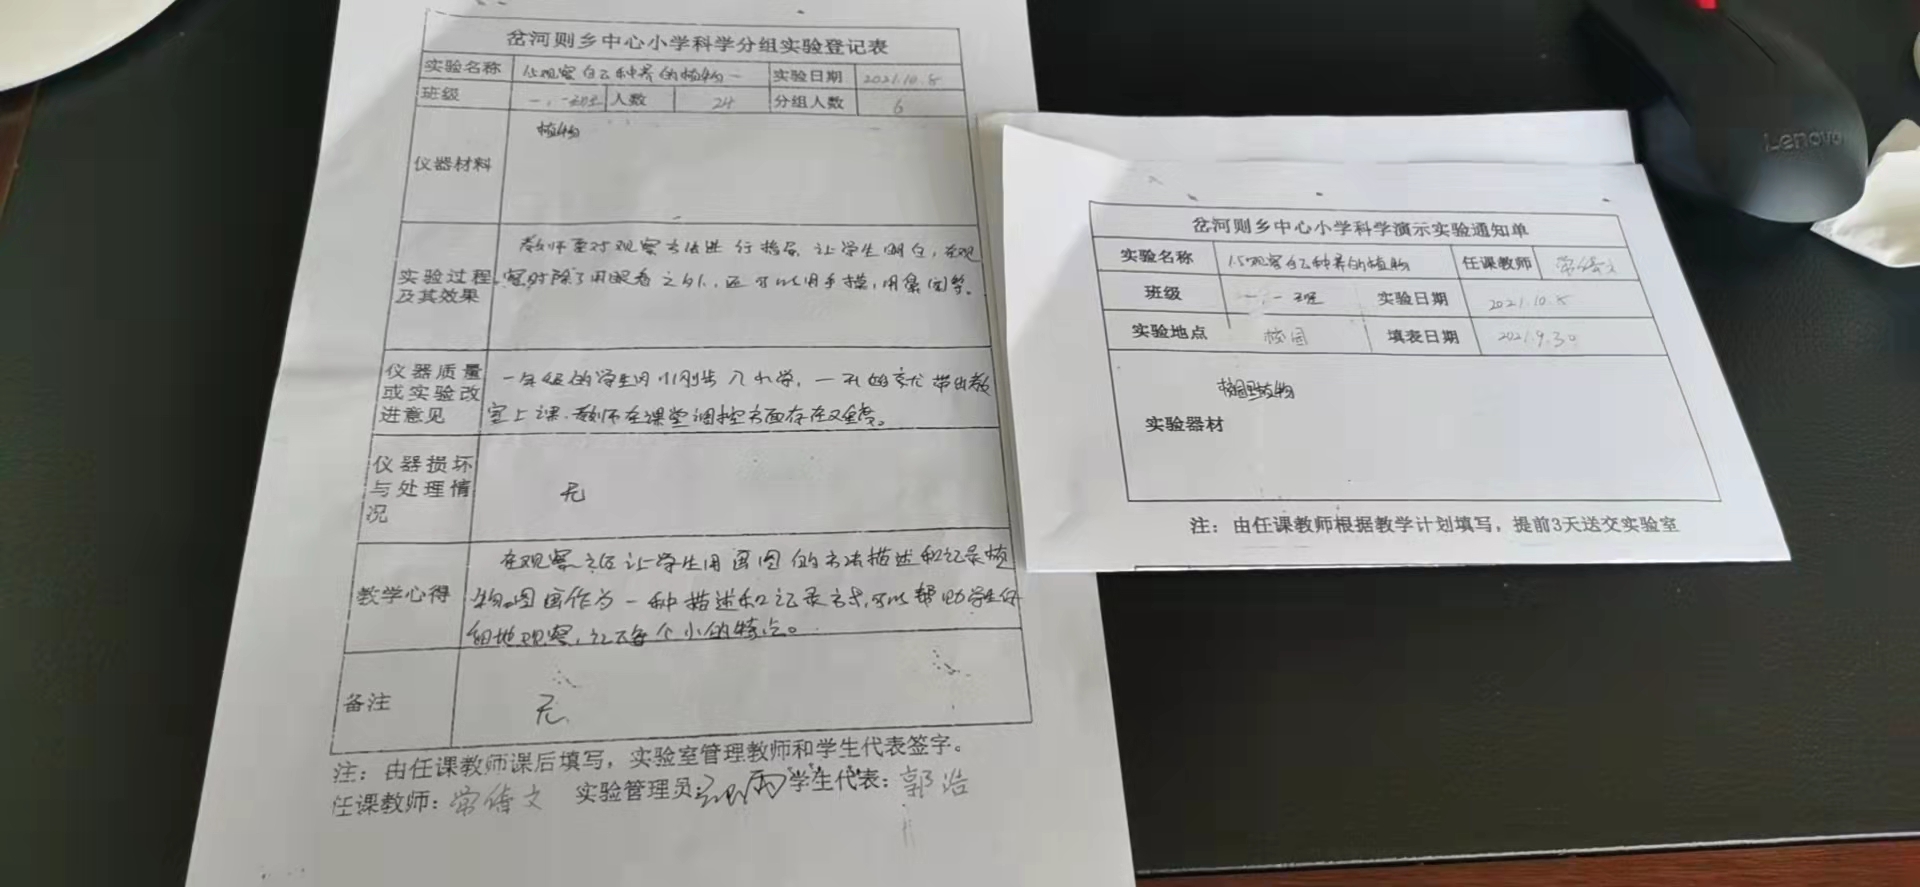 岔河则乡中心小学科学分组实验登记表
实验名称 1、观察自己种养的植物一 实验日期 2021.10.8
班级 一.一班 人数 24 分组人数 6
仪器材料 植物
实验过程及其效果
教师要对观察方法进行指导 让学生明白,在观
察时除了用眼看之外,还可以用手摸,用鼻闻等。
仪器质量或实验改进意见
一年级的学生刚刚步入小学,一开始就带出教
室上课.教师在课堂调控方面存在难度。
仪器损坏与处理情况 无
教学心得
在观察之后让学生用画图的方法描述和记录植
物。图画作为一种描述和记录方式,可以帮助学生仔
细地观察,记下每个小的特点。
备注 无
注:由任课教师课后填写,实验室管理教师和学生代表签字。
任课教师:常倚文 实验管理员: 雨 学生代表:郭浩
岔河则乡中心小学科学演示实验通知单
实验名称 1、观察自己种养的植物 任课教师 常倚文
班级 一.一班 实验日期 2021.10.8
实验地点 校园 填表日期 2021.9.30
校园里植物
实验器材
注:由任课教师根据教学计划填写,提前3天送交实验室
Lenovo